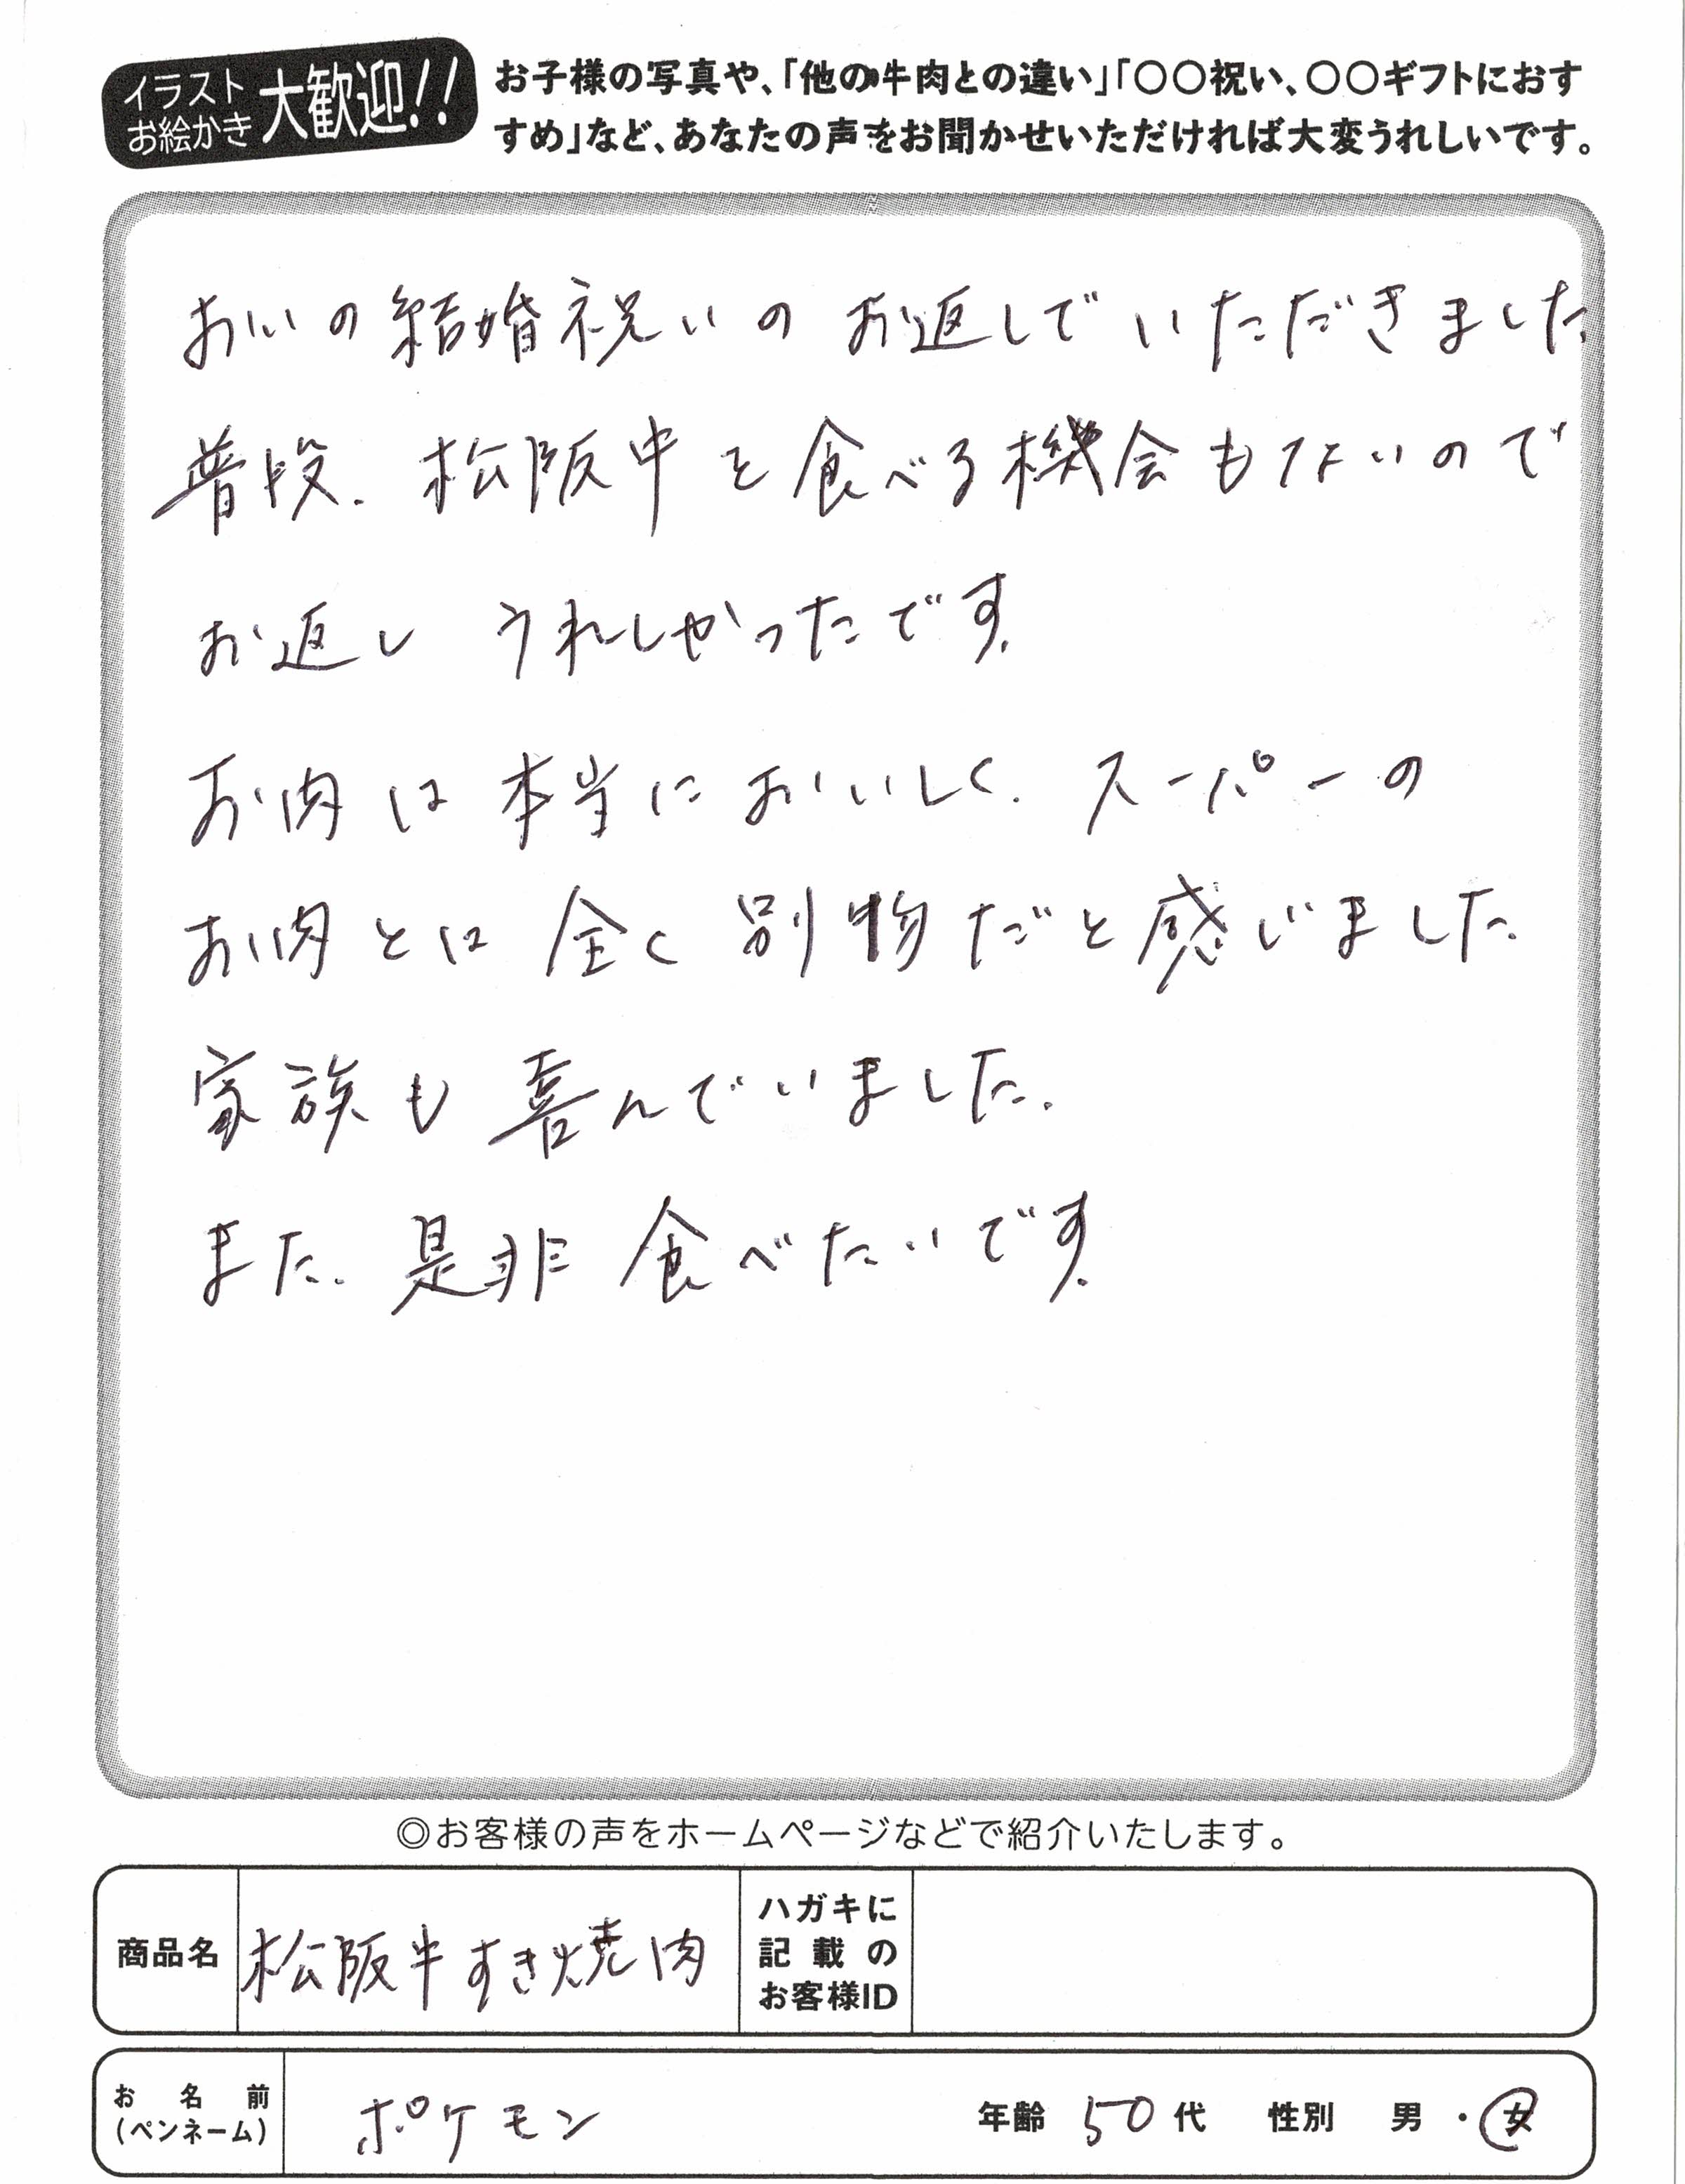 イラスト
お絵かき
大歓迎!!
お子様の写真や、「他の牛肉との違い」「〇〇祝い、〇〇ギフトにおす
すめ」など、あなたの声をお聞かせいただければ大変うれしいです。
おいの結婚祝いの お返しで いただきました
普段、松阪牛を食べる機会もないので
お返し うれしかったです。
お肉は本当においしく、スーパーの
お肉とは 全く 別物だと感じました。
家族も 喜んでいました。
また、是非 食べたいです。
◎お客様の声をホームページなどで紹介いたします。
商品名
松阪牛すき焼肉
ハガキに
記載の
お客様ID
お名前
(ペンネーム)
ポケモン
年齢 50 代 性別 男・女